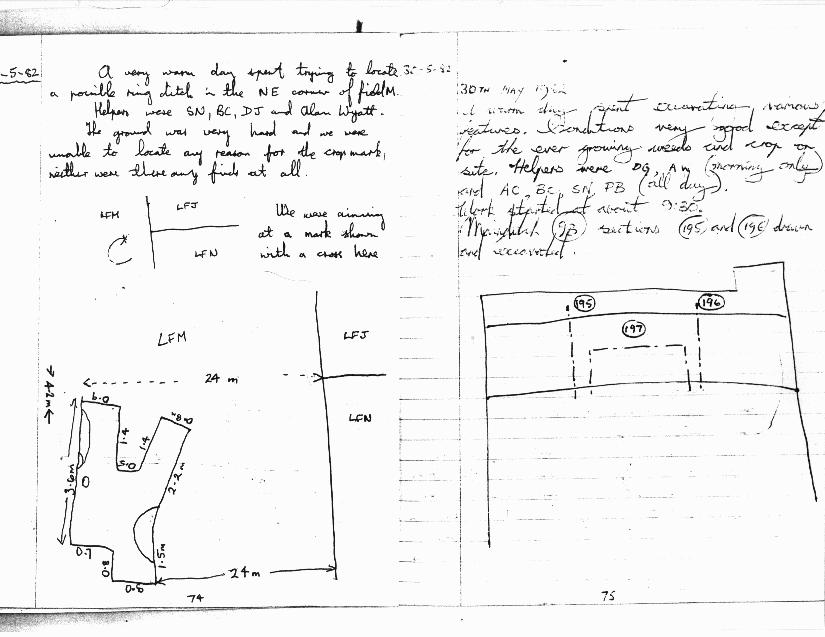 -5-82
A very warm day spent trying to locate
a possible ring ditch in the NE corner of field M.
Helpers were SN, BC, DJ and Alan Wyatt.
The ground was very hard and we were
unable to locate any reason for the crop mark,
neither were there any finds at all.
LFM
LFJ
LFN
We were aiming
at a mark shown
with a cross here
LFM
LFJ
24 m
4.2m
LFN
0.9
0.8
1.4
1.4
0.5
3.6m
2.2m
0.7
0.8
1.5m
0.8
24m
74
30-5-82
30TH MAY 1982
A warm day spent excavating various
features. Conditions very good except
for the ever growing weeds and crop on
site. Helpers were DG, AM (morning only)
and AC, BC, SN, PB (all day).
Work started at about 9:30.
sections 195 and 196 drawn
and excavated.
195
196
197
75